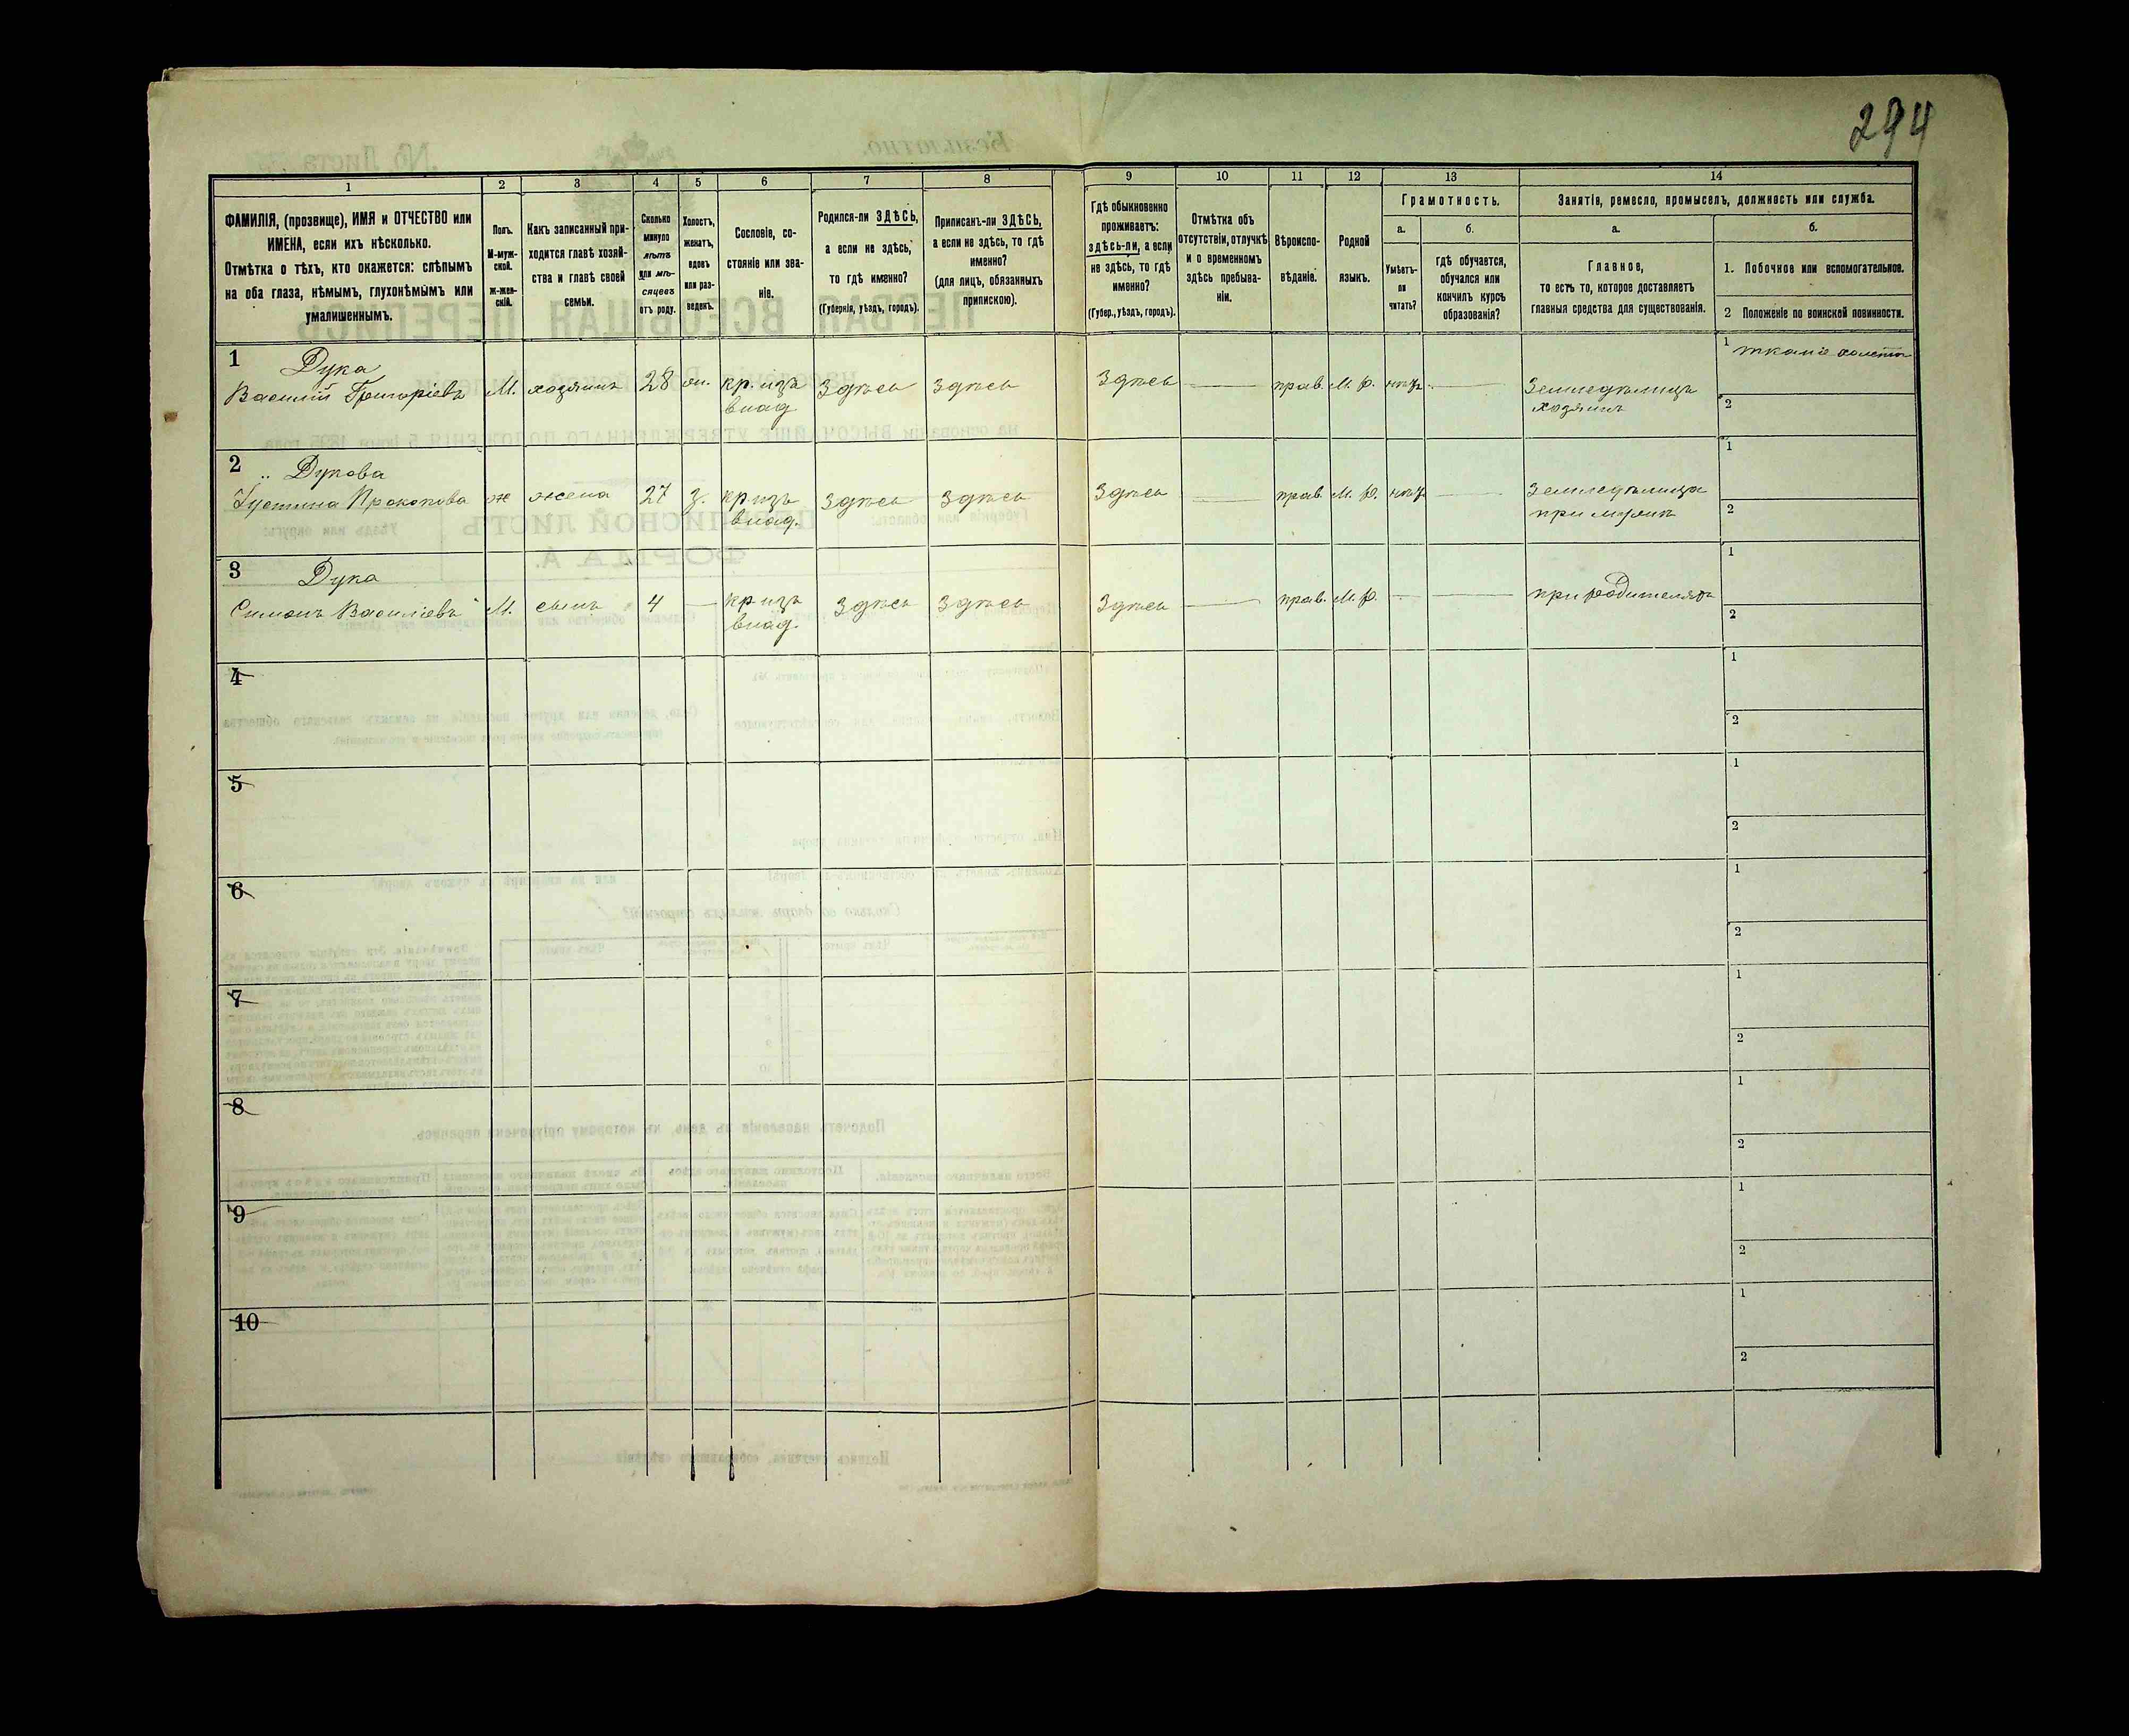 294
1
2
3
4
5
6
7
8
9
10
11
12
13
14
ФАМИЛІЯ, (прозвище), ИМЯ и ОТЧЕСТВО или
ИМЕНА, если ихъ нѣсколько.
Отмѣтка о тѣхъ, кто окажется: слѣпымъ
на оба глаза, нѣмымъ, глухонѣмымъ или
умалишеннымъ.
Полъ.
М-муж-
ской.
Ж-жен-
скій.
Какъ записанный при-
ходится главѣ хозяй-
ства и главѣ своей
семьи.
Сколько
минуло
лѣтъ
или мѣ-
сяцевъ
отъ роду.
Холостъ,
женатъ,
вдовъ
или раз-
веденъ.
Сословіе, со-
стояніе или зва-
ніе.
Родился-ли ЗДѢСЬ,
а если не здѣсь,
то гдѣ именно?
(Губернія, уѣздъ, городъ).
Приписанъ-ли ЗДѢСЬ,
а если не здѣсь, то гдѣ
именно?
(для лицъ, обязанныхъ
припискою).
Гдѣ обыкновенно
проживаетъ:
здѣсь-ли, а если
не здѣсь, то гдѣ
именно?
(Губер., уѣздъ, городъ).
Отмѣтка объ
отсутствіи, отлучкѣ
и о временномъ
здѣсь пребыва-
ніи.
Вѣроиспо-
вѣданіе.
Родной
языкъ.
Грамотность.
а.
Умѣетъ-
ли
читать?
б.
гдѣ обучается,
обучался или
кончилъ курсъ
образованія?
Занятія, ремесло, промыселъ, должность или служба.
а.
Главное,
то есть то, которое доставляетъ
главныя средства для существованія.
б.
1. Побочное или вспомогательное.
2 Положеніе по воинской повинности.
1 Дука
Василій Григоріевъ М. хозяинъ 28 жн. кр. изъ Здѣсь Здѣсь Здѣсь — прав. М. р. нѣтъ — Земледѣлецъ
влад хозяинъ
1 тканіе холста
2
2 „ Дукова
Іустина Прокопова ж жена 27 з. кр изъ Здѣсь Здѣсь Здѣсь — прав М. р. нѣтъ — Земледѣлица
влад. при мужѣ
1
2
3 Дука
Симонъ Васильевъ М. сынъ 4 — кр изъ Здѣсь Здѣсь Здѣсь — прав. М. р. — — при родителяхъ
влад.
1
2
4
1
2
5
1
2
6
1
2
7
1
2
8
1
2
9
1
2
10
1
2